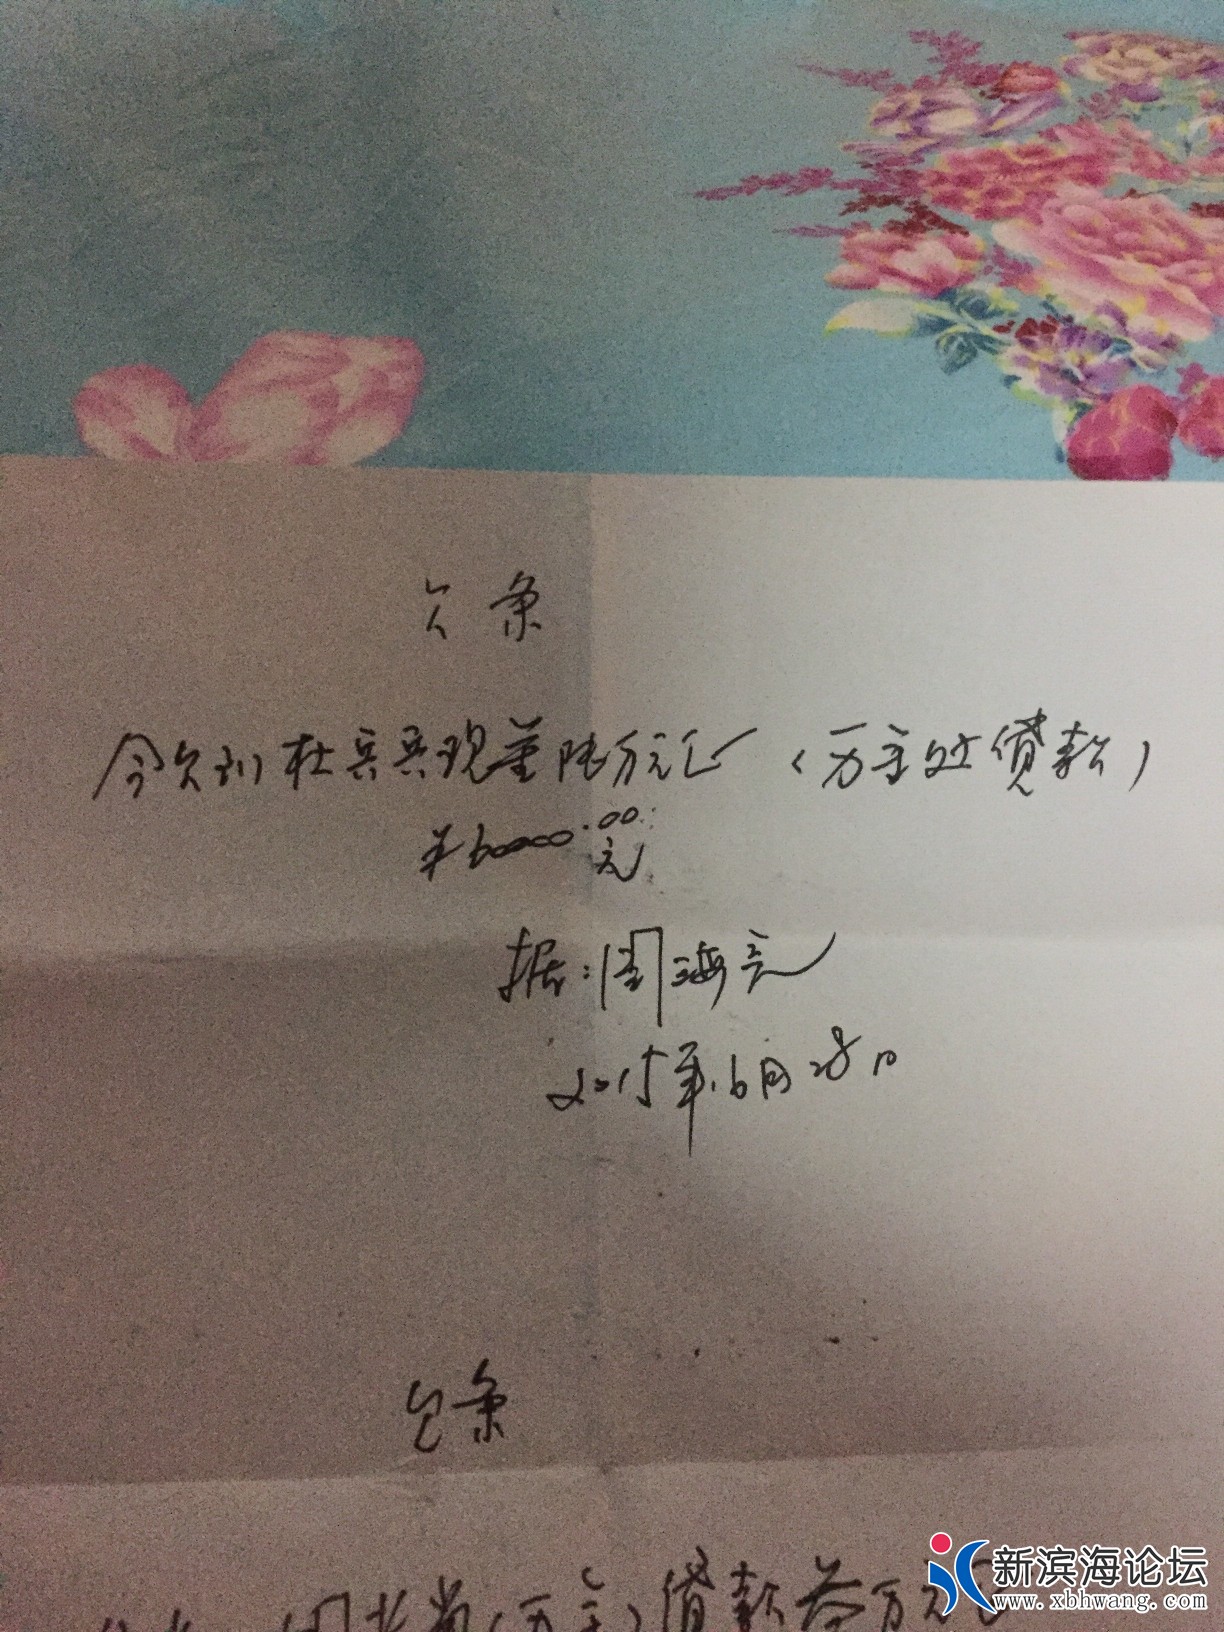 欠条
今欠到杜兵兵现金陆万元正（万主处贷款）
¥60000.00元
据:周海亮
2015年6月28日
欠条
(万主)贷款叁万元正
新滨海论坛
www.xbhwang.com